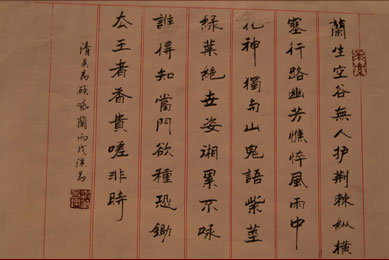 蘭生空谷無人护荆棘纵横
塞行路幽芳憔悴風雨中
花神獨与山鬼語紫莖
綠葉絕世姿湘累不咏
誰得知當門欲種恐鋤
去王者香貴嗟非時
清吳昌碩咏蘭丙戌洪